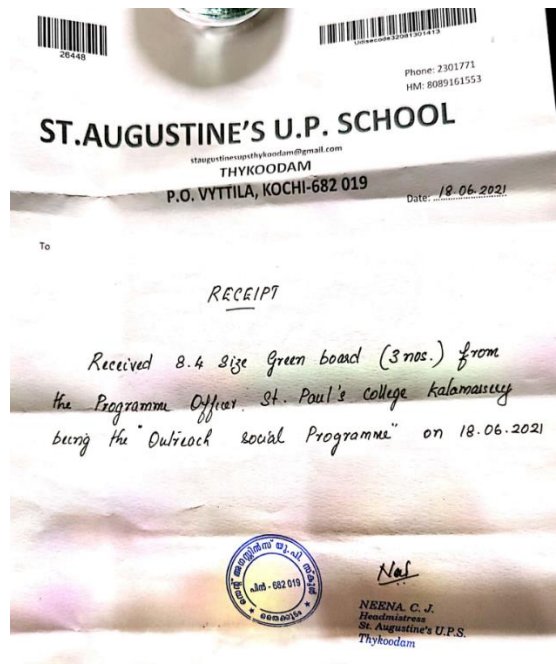 26448
Udisecode32081301413
Phone: 2301771
HM: 8089161553
ST.AUGUSTINE'S U.P. SCHOOL
staugustinesupsthykoodam@gmail.com
THYKOODAM
P.O. VYTTILA, KOCHI-682 019
Date: 18.06.2021
To
RECEIPT
Received 8.4 Size Green board (3 nos.) from
the Programme Officer. St. Paul's College Kalamassery
being the "Outreach social Programme" on 18.06.2021
സെന്റ് അഗസ്റ്റിൻസ് യു.പി. സ്കൂൾ
പിൻ - 682 019
തൈക്കൂടം
NEENA. C. J.
Headmistress
St. Augustine's U.P.S.
Thykoodam